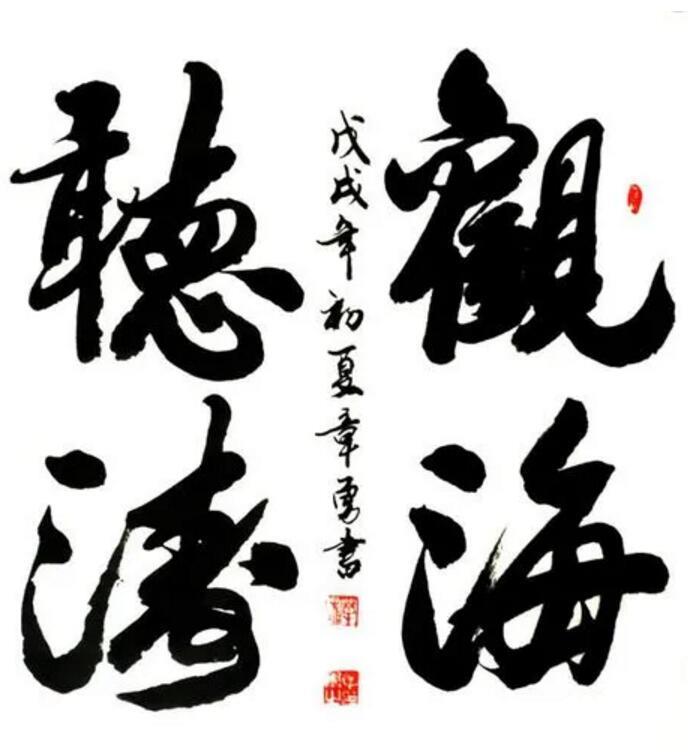 觀海
聽濤
戊戌年初夏章勇書